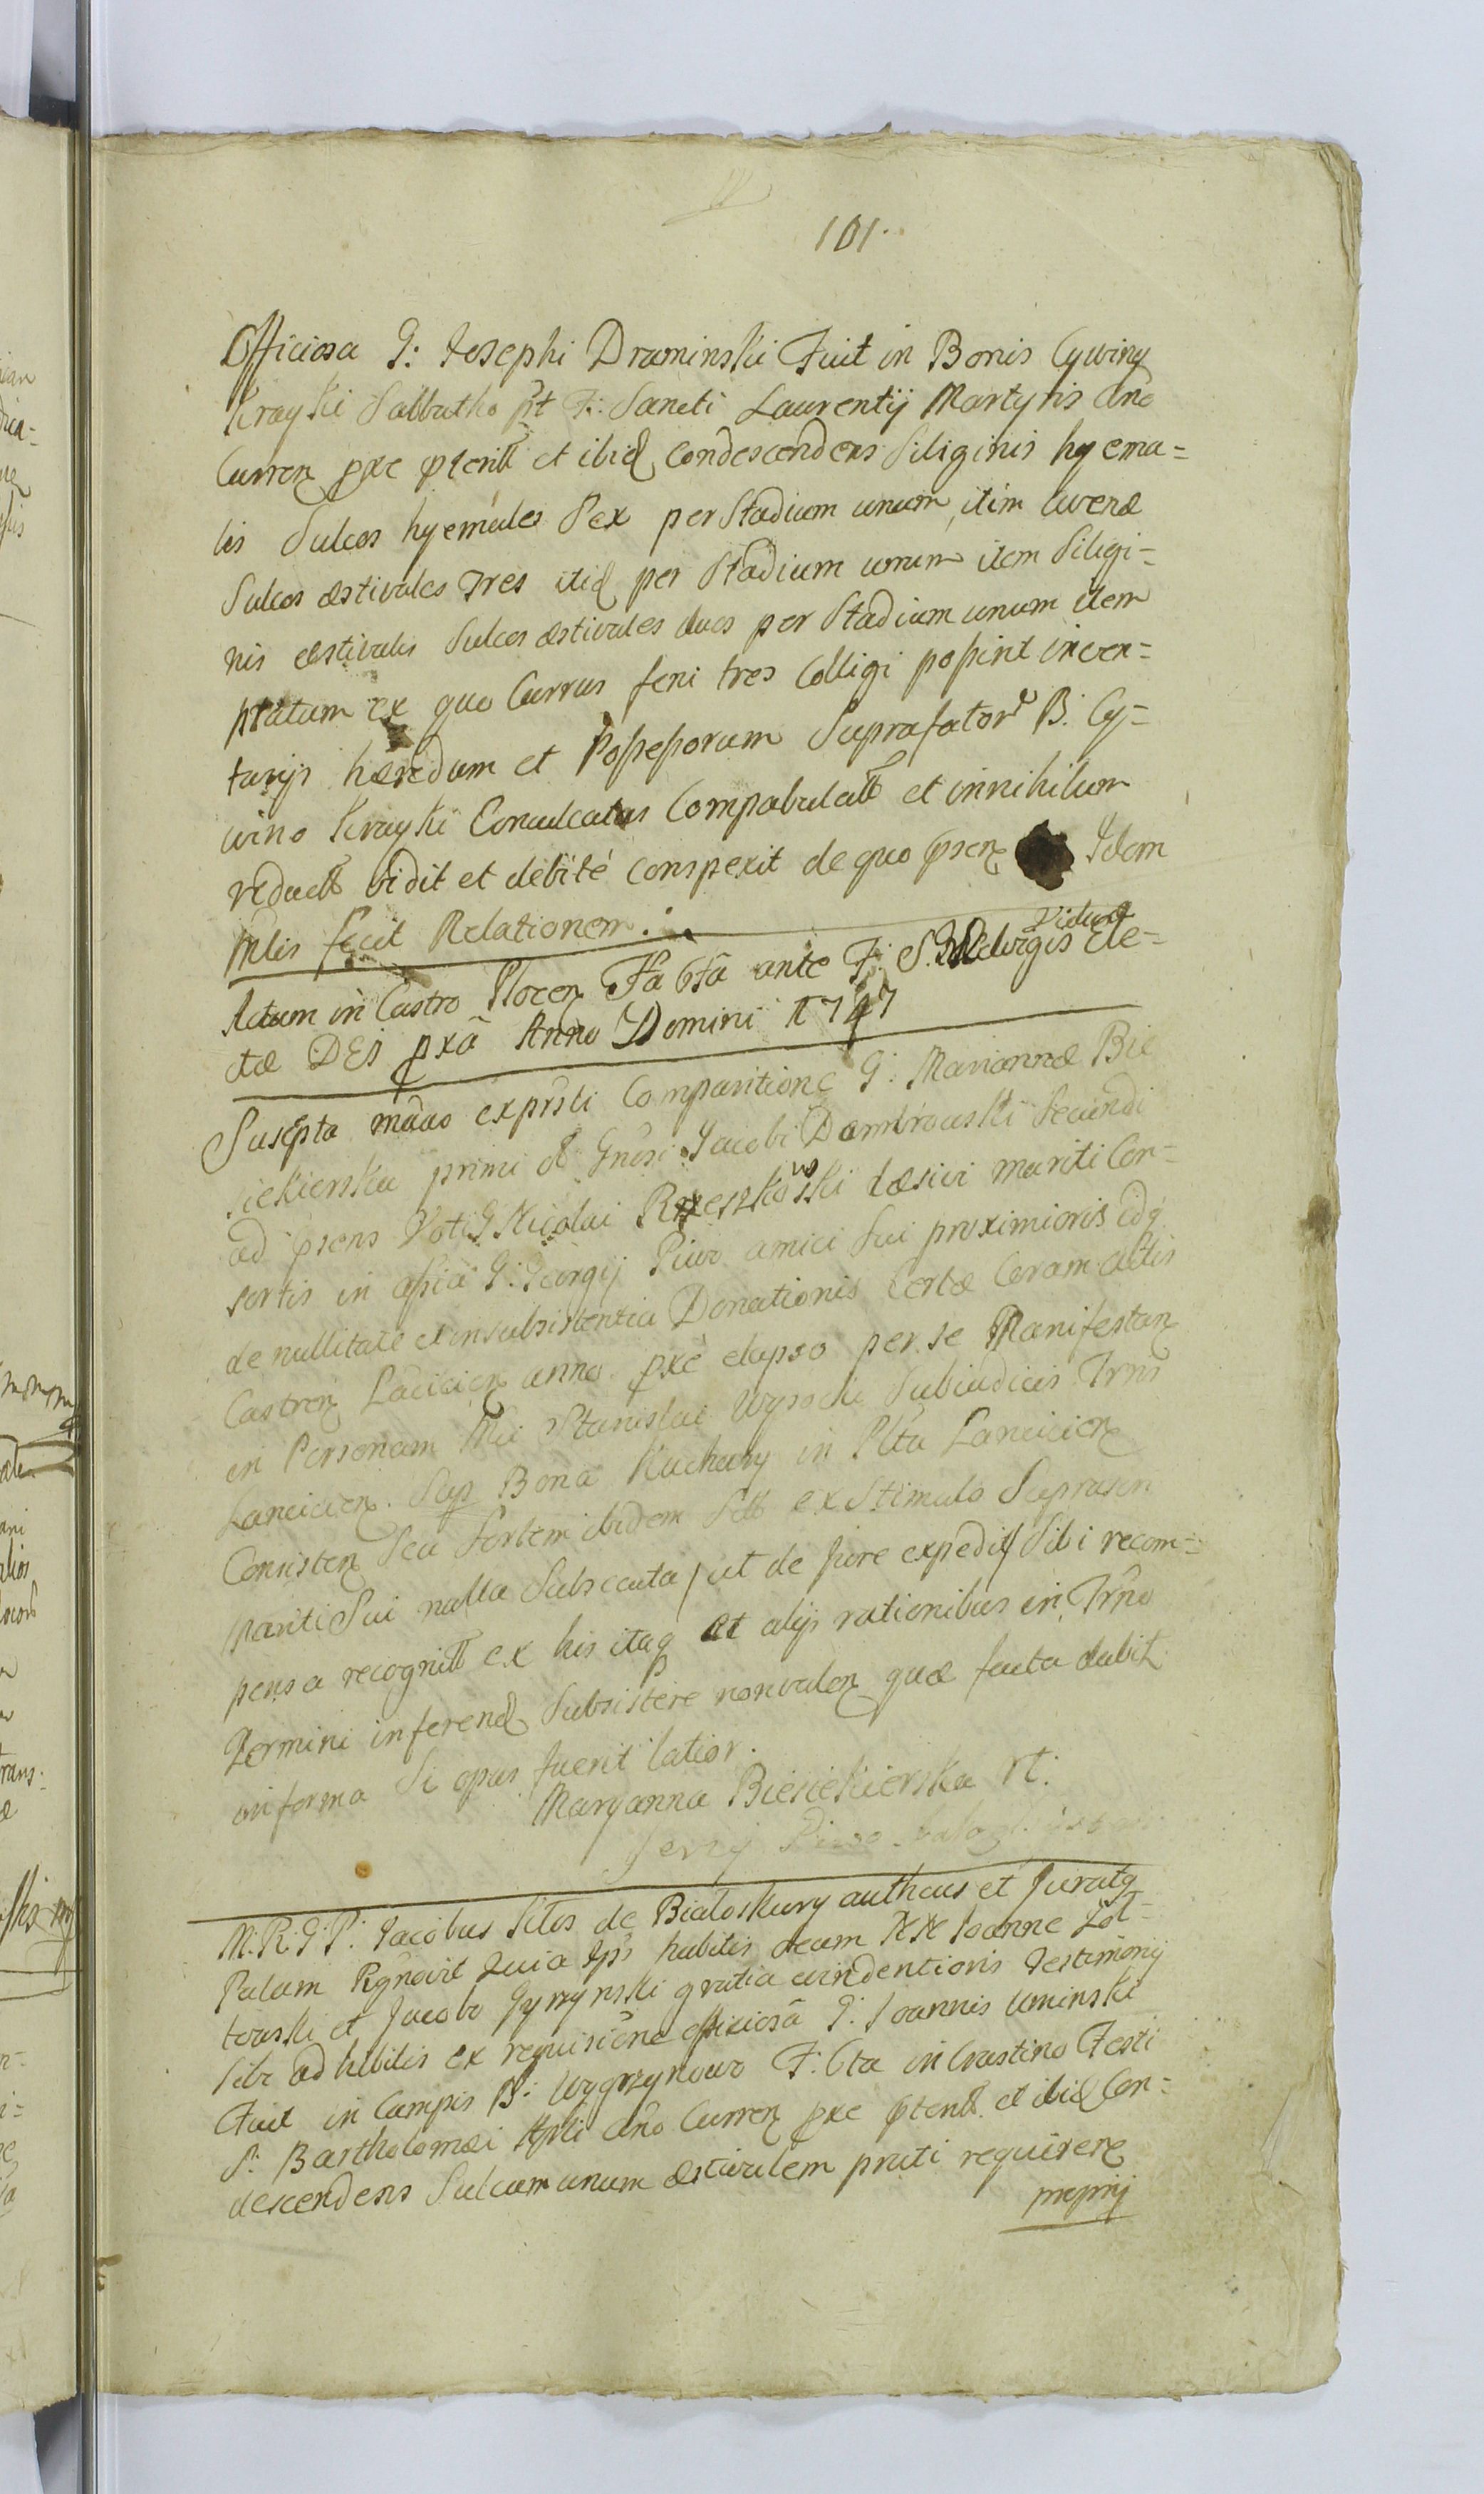 101.
Officiosa G: Josephi Draminski Fuit in Bonis Cywiny
Krayki Sabbatho pt F: Sancti Laurentij Martyris Ano
Curren pxe pterit et ibid Condescendens Siliginis hyema=
lis Sulcos hyemales Sex per Stadium unum, item avenæ
Sulcos æstivales Tres itid per Stadium unum item Siligi=
nis æstivalis Sulcos æstivales duos per Stadium unum item
pratum ex quo Currus feni tres Colligi possint inven=
tarijs hæredum et Possessorum Suprafator B. Cy=
wino Krayki Conculcatas Compabulatt et innihilum
reductt vidit et debité Conspexit de quo psen Idem
Mlis fecit Relationem.
Actum in Castro Plocen Fa 6ta ante F. S. Hedvigis Viduæ Ele=
ctæ DEI pxa Anno Domini 1747
Suscepta máno exprsti Comparitione G: Mariannæ Bie
siekierska primi Gnosi Jacobi Dombrowski Secundi
ad psens Voti G Nicolai Rzeszkowski læsivi mariti Con=
sortis in assia G: Georgij Piwo amici Sui proximioris edq
de nullitate et insubsistentia Donationis Certæ Coram actis
Castren Lancicien anno pxe elapso per se Manifestan
in Personam Mci Stanislai Wysocki Subiudicis Trns
Lancicien. Sup Bona Kuchary in Pltu Lancicien
Consisten Seu Sortem ibidem ex Stimulo Suprascri
mariti Sui nulla Subsecuta / ut de jure expedit / Sibi recom=
pensa recognitt ex his itaq et alijs rationibus in Trno
Termini inferend Subsistere nonvalen quæ facta dabit
in forma Si opus fuerit latior.
Maryanna Biesiekierska rt:
Jerzy Piwo
M: R: G: P: Jacobus Sitos de Bialoskury autheus et Juratq
Palam Rgnovit Quia Ips habitis secum NN Joanne Zol=
towski et Jacobo Gyzynski gratia evindentioris Testimonij
Sibi adhibitis ex requisitione officiosa G: Joannis Uminski
Fuit in Campis B: Węgrzynowo F: 6ta in Crastino Festi
S: Bartholomæi Apli Ano Curren pxe pterit et ibid Con=
descendens Sulcum unum æstivalem prati requirere
proprij